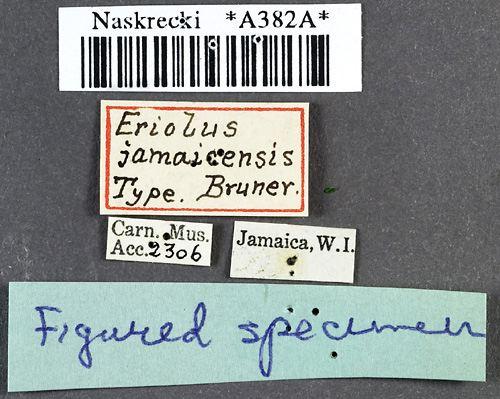 Naskrecki *A382A*
Eriolus
jamaicensis
Type. Bruner.
Carn. Mus.
Acc. 2306
Jamaica, W. I.
Figured specimen